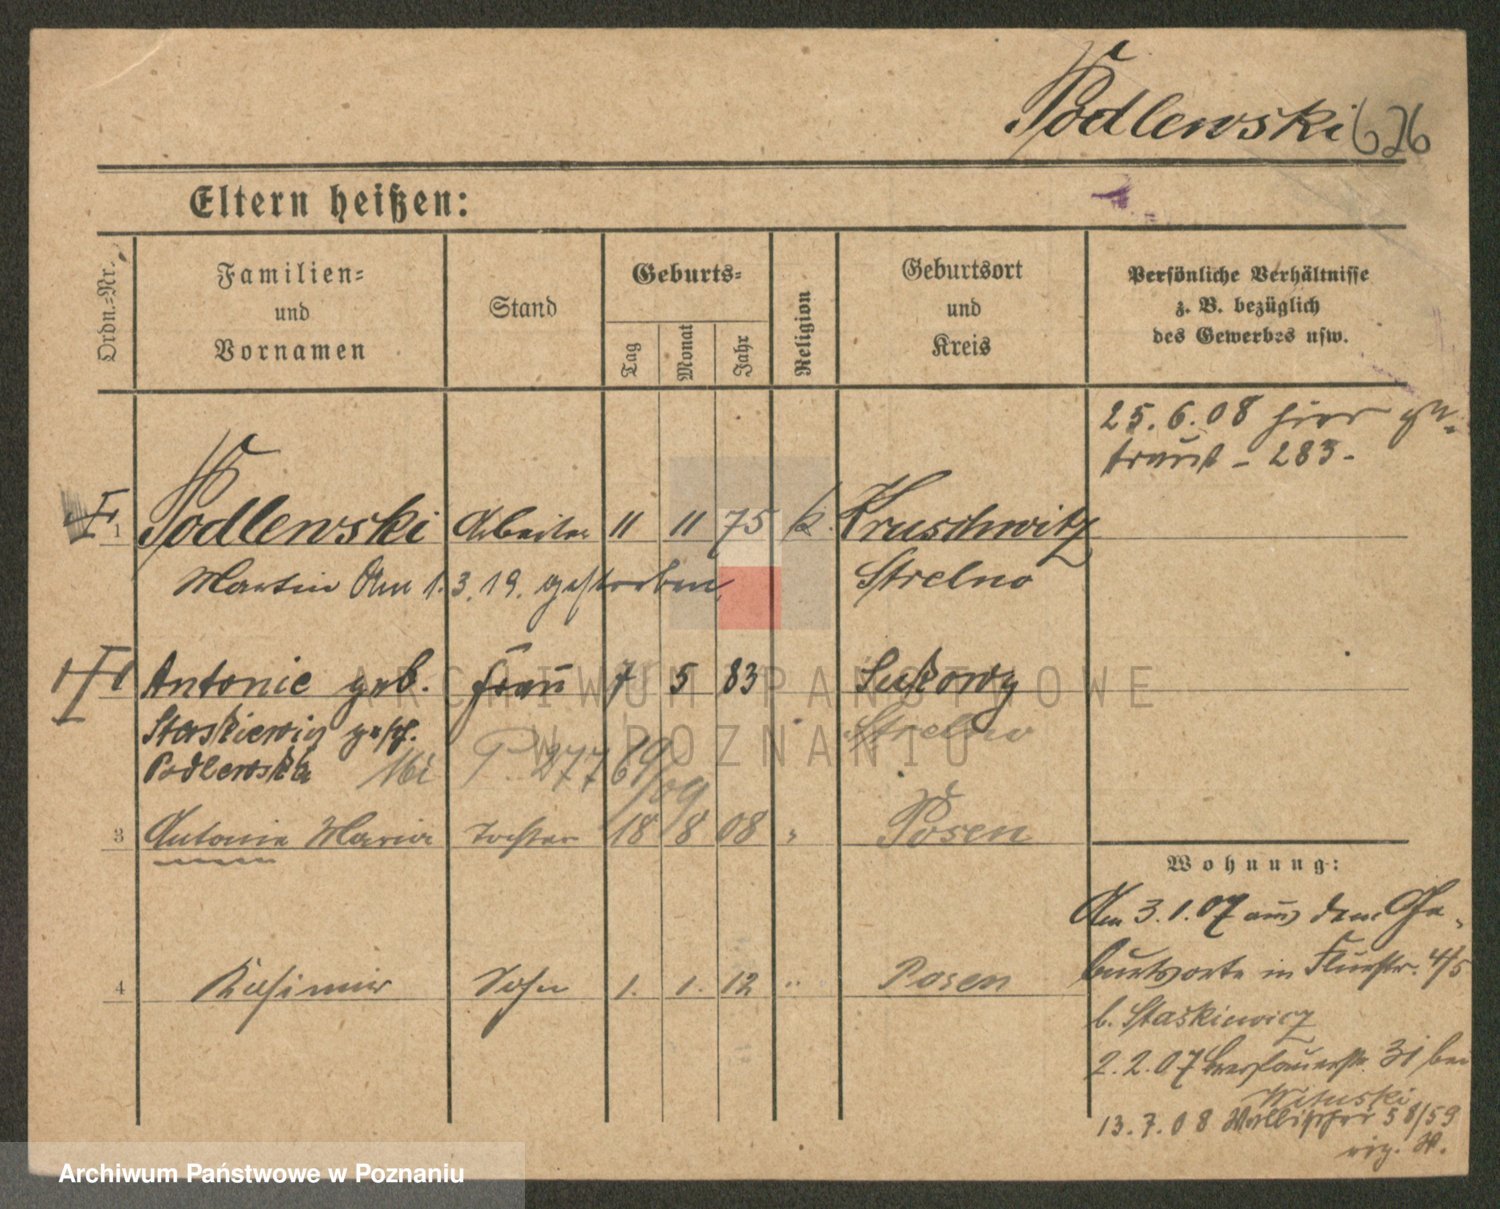 Podlewski 626
Eltern heißen:
Ordn.-Nr.
Familien- und Vornamen
Stand
Geburts-
Tag
Monat
Jahr
Religion
Geburtsort und Kreis
Persönliche Verhältnisse
z. B. bezüglich
des Gewerbes usw.
25.6.08 hier ge-
traut - 283-
1 Podlewski Arbeiter 11 11 75 k. Kruschwitz
Martin Am 1.3.19. gestorben, Strelno
Antonie geb. Frau 7 5 83 Sukowy
Staskiewicz gesch. " Strelno
Podlewska P. 277 69/09
3 Antonie Maria Tochter 18 8 08 " Posen
4 Kasimir Sohn 1. 1. 12 " Posen
Wohnung:
Am 3.1.07 aus dem Ge-
burtsorte in Flurstr. 4/5
b. Staskiewicz
2.2.07 Breslauerstr. 31 bei
Wituski
13.7.08 Wallischei 58/59
eig. W.
ARCHIWUM PAŃSTWOWE
W POZNANIU
Archiwum Państwowe w Poznaniu